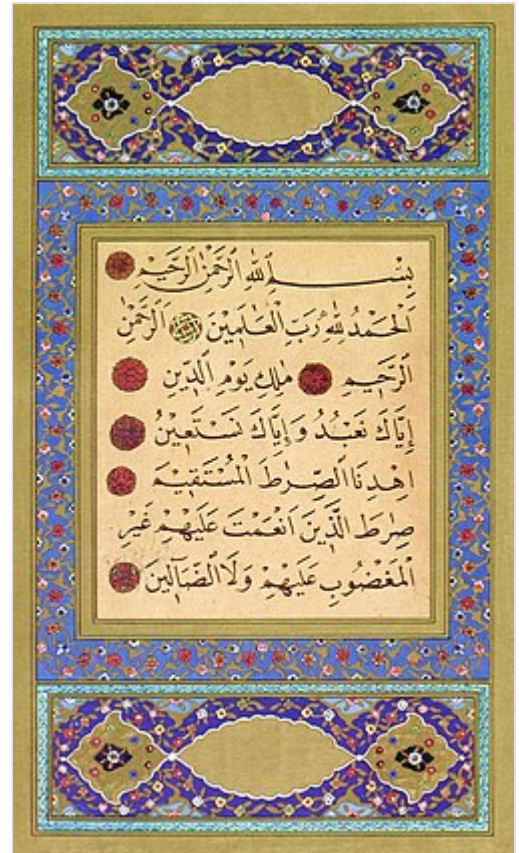 بِسْمِ ٱللّٰهِ ٱلرَّحْمٰنِ ٱلرَّحٖيمِ
اَلْحَمْدُ لِلّٰهِ رَبِّ الْعَالَمٖينَ اَلرَّحْمٰنِ
الرَّحٖيمِ مٰلِكِ يَوْمِ الدّٖينِ
اِيَّاكَ نَعْبُدُ وَ اِيَّاكَ نَسْتَعٖينُ
اِهْدِنَا الصِّرٰطَ الْمُسْتَقٖيمَ
صِرٰطَ الَّذٖينَ اَنْعَمْتَ عَلَيْهِمْ غَيْرِ
الْمَغْضُوبِ عَلَيْهِمْ وَلَا الضَّٓالّٖينَ